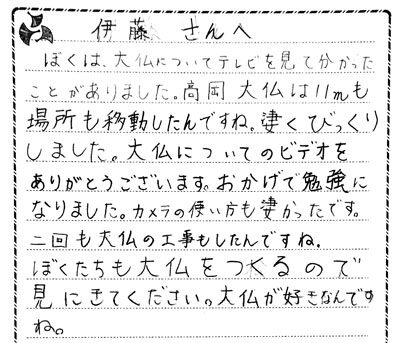 伊藤 さんへ
ぼくは、大仏についてテレビを見て分かった
ことがありました。高岡大仏は11mも
場所も移動したんですね。凄くびっくり
しました。大仏についてのビデオを
ありがとうございます。おかげで勉強に
なりました。カメラの使い方も凄かったです。
二回も大仏の工事もしたんですね.
ぼくたちも大仏をつくるので
見にきてください。大仏が好きなんです
ね。